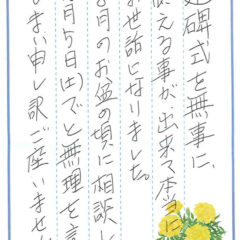 碑式を無事に、
える事が、出来て本当に
お世話になりました。
月のお盆の頃に相談し
月5日(土)でと無理を言
まい申し訳ご座いません